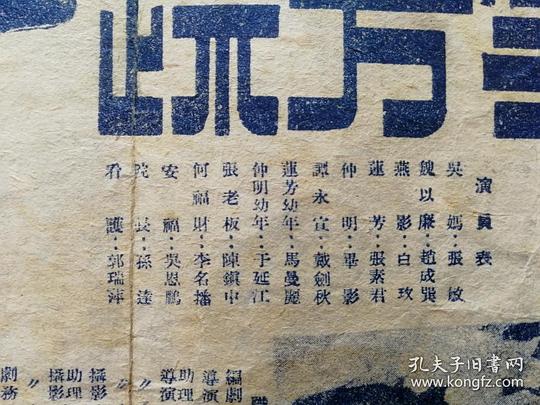 芳
演員表
吳媽：張敏
魏以廉：趙成巽
燕影：白玫
蓮芳：張素君
仲明：畢影
譚永宣：戴劍秋
蓮芳幼年：馬曼麗
仲明幼年：于延江
張老板：陳鎮中
何福財：李名播
安福：吳恩鵬
院長：孫達
看護：郭瑞萍
職
編劇
導演
助理導演
〃
〃
攝影
助理攝影
〃
劇務
孔夫子旧书网
www.kongfz.com